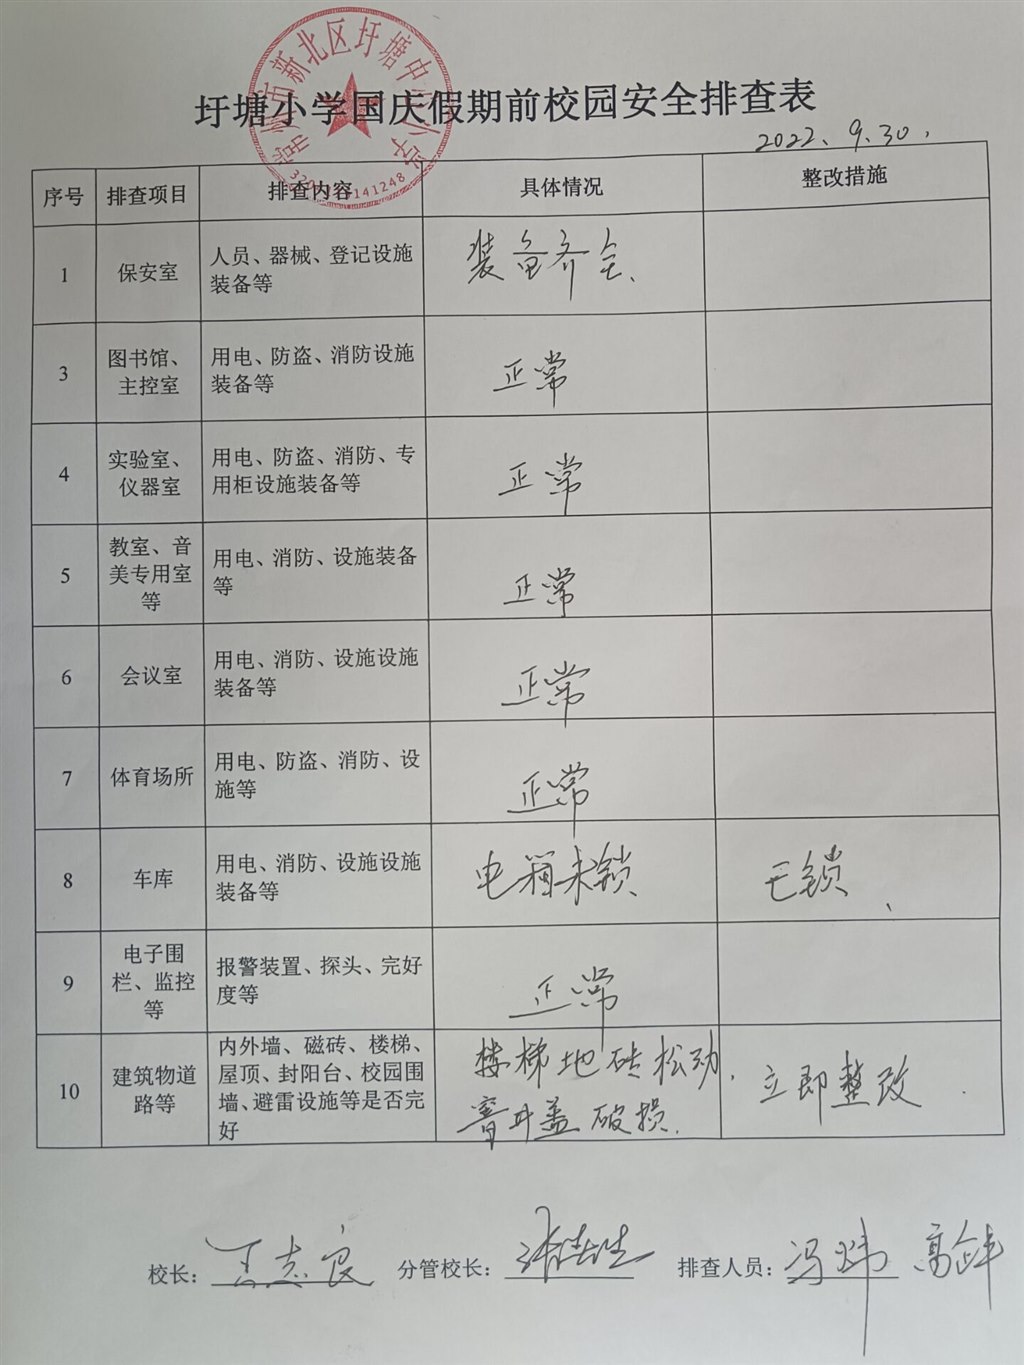 常州市新北区圩塘中心小学
圩塘小学国庆假期前校园安全排查表
2022、9.30.
序号 排查项目 排查内容 具体情况 整改措施
1 保安室 人员、器械、登记设施
装备等 装备齐全、
3 图书馆、
主控室 用电、防盗、消防设施
装备等 正常
4 实验室、
仪器室 用电、防盗、消防、专
用柜设施装备等 正常
5 教室、音
美专用室
等 用电、消防、设施装备
等 正常
6 会议室 用电、消防、设施设施
装备等 正常
7 体育场所 用电、防盗、消防、设
施等 正常
8 车库 用电、消防、设施设施
装备等 电箱未锁 已锁、
9 电子围
栏、监控
等 报警装置、探头、完好
度等 正常
10 建筑物道
路等 内外墙、磁砖、楼梯、
屋顶、封阳台、校园围
墙、避雷设施等是否完
好 楼梯地砖松动.
窨井盖破损. 立即整改.
校长: 王志良 分管校长: 排查人员: 冯炜